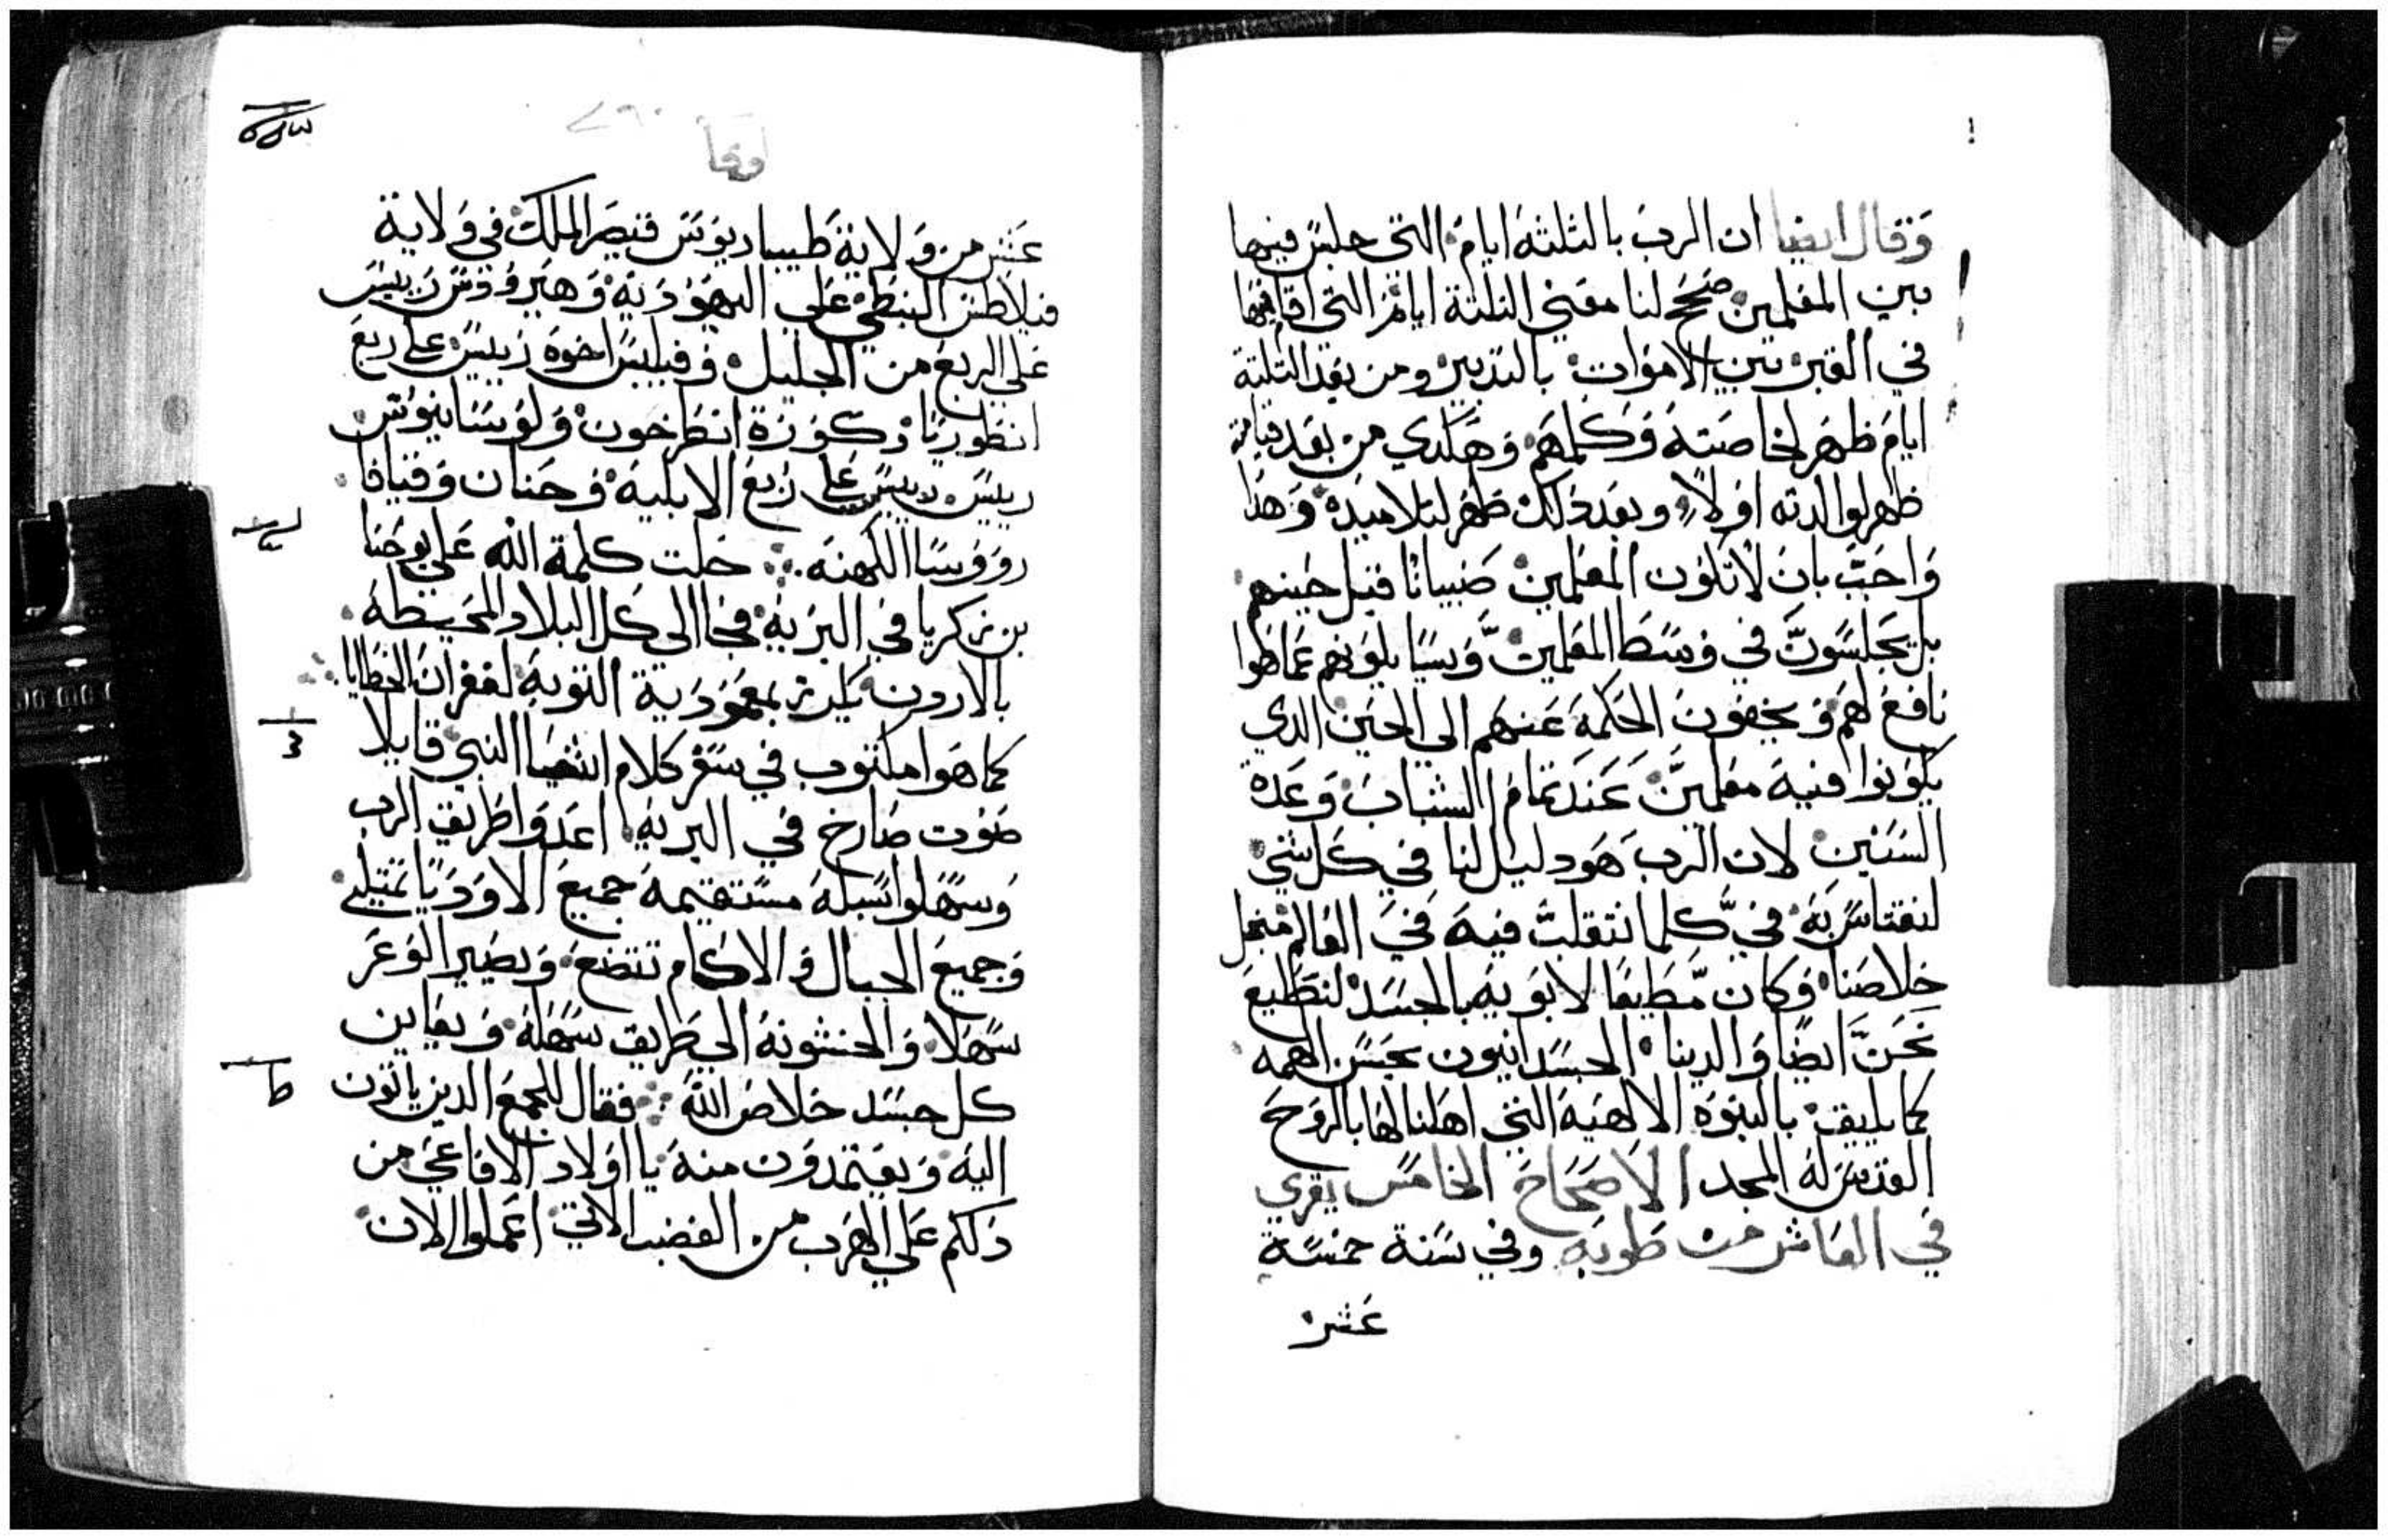 وقال ايضا ان الرب بالثلثه ايام التي جلس فيها
بين المعلمين صحح لنا معني الثلتة ايام التي اقامها
في القبر بين الاموات بالتدبير ومن بعد التلتة
ايام ظهر لخاصته وكلمهم وهكدي من بعد قيامته
ظهر لوالدته اولا وبعد دلك ظهر لتلاميده وهدا
واجب بان لا تكون المعلمين صبيانا قبل حينهم
بل يجلسون في وسط المعلمين ويسايلونهم عما هوا
نافع لهم ويخفون الحكمة عنهم الي الحين الدي
يكونوا فيه معلمين عند تمام الشباب وعدة
السنين لان الرب هو دليل لنا في كل شي
لنقتاس به في كلما تنقلت فيه في العالم من اجل
خلاصنا وكان مطيعا لابويه بالجسد لنطيع
نحن ايضا والدينا الجسدانيون بحسن الهمه
كما يليق بالبنوه الالهيه التي اهلنا لها بالروح
القدس له المجد الاصحاح الخامس يقري
في العاشر من طوبه وفي سنة خمسة
عشر
لوقا
عشر من ولاية طيباريوس قيصر الملك في ولاية
فيلاطس النبطي علي اليهوديه وهيرودس رييس
علي الربع من الجليل وفيلبس اخوه رييس علي ربع
انطوريا وكورة انطراخون ولوسانيوس
رييس رييس علي ربع الابليه وحنان وقيافا
رووسا الكهنه حلت كلمة الله علي يوحنا
بن زكريا في البريه فجا الى كل البلاد المحيطه
بالاردن يكرز بمعمودية التوبه لغفران الخطايا
كما هوا مكتوب في سفر كلام اشعيا النبي قايلا
صوت صارخ في البريه اعدوا طريق الرب
وسهلوا سبله مستقيمه جميع الاوديا تمتلي
وجميع الجبال والاكام تتضع ويصير الوعر
سهلا والخشونه الي طريق سهله ويعاين
كل جسد خلاص الله فقال للجمع الدين ياتون
اليه ويعتمدون منه يا اولاد الافاعي من
دلكم علي الهرب من الغضب الاتي اعملوا الان